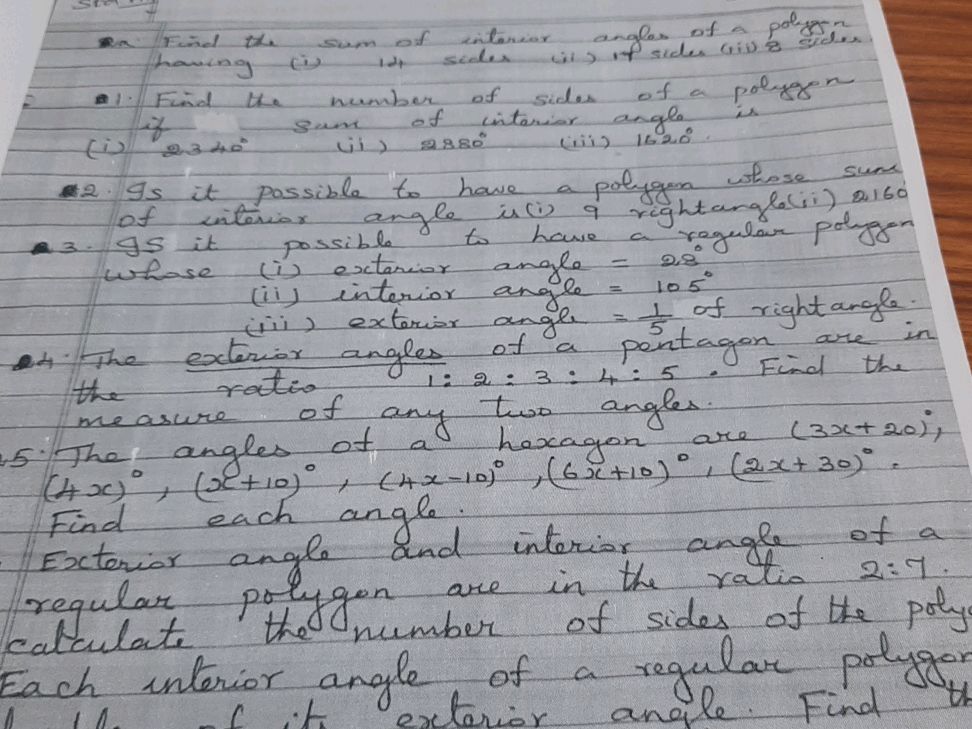 Find the sum of interior angles of a polygon
having (i) 14 sides (ii) 17 sides (iii) 8 sides.
1. Find the number of sides of a polygon
if sum of interior angle is
(i) 2340° (ii) 2880° (iii) 1620°.
2. Is it possible to have a polygon whose sum
of interior angle is (i) 9 rightangle (ii) 2160
3. Is it possible to have a regular polygon
whose (i) exterior angle = 28°
(ii) interior angle = 105°
(iii) exterior angle = 1/5 of rightangle.
4. The exterior angles of a pentagon are in
the ratio 1:2:3:4:5. Find the
measure of any two angles.
5. The angles of a hexagon are (3x+20)°,
(4x)°, (x+10)°, (4x-10)°, (6x+10)°, (2x+30)°.
Find each angle.
Exterior angle and interior angle of a
regular polygon are in the ratio 2:7.
calculate the number of sides of the
Each interior angle of a regular polygon
of its exterior angle. Find